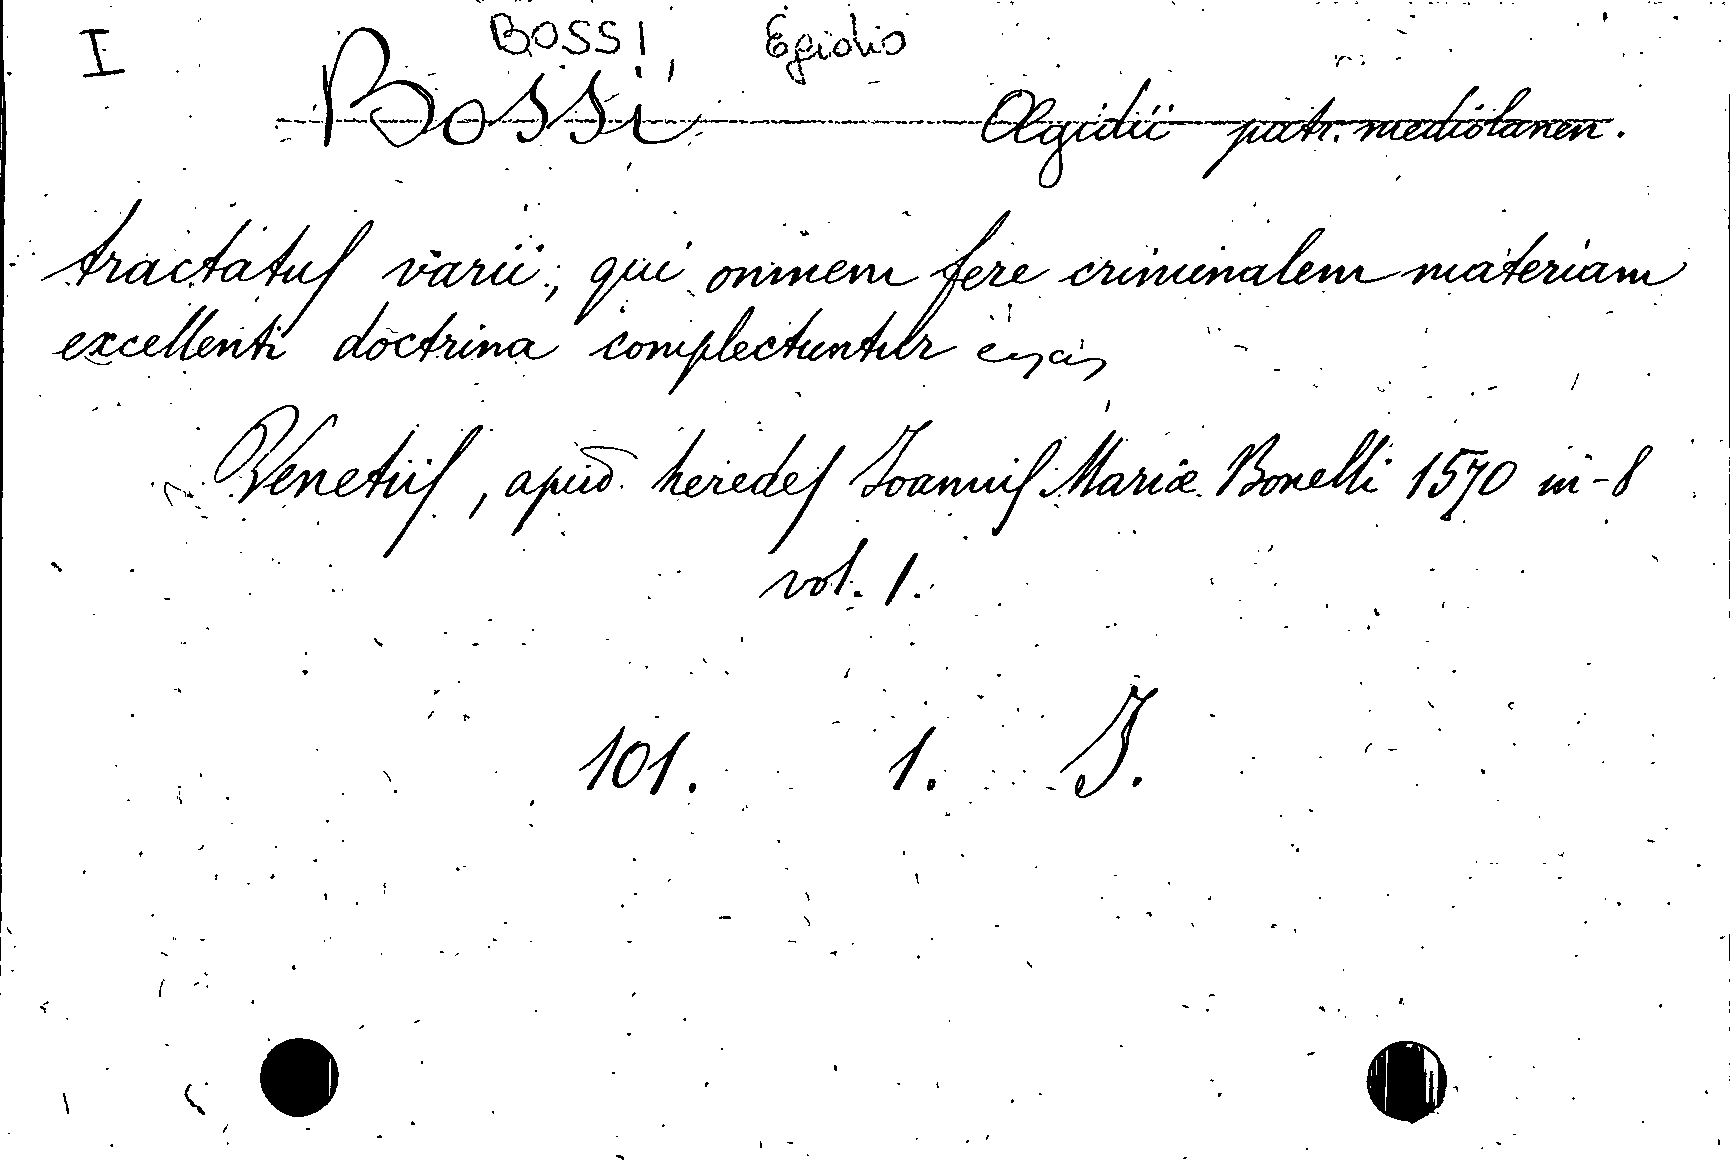 I BOSSI, Egidio
Bossi Ægidii patr. mediolanen.
tractatus varii, qui omnem fere criminalem materiam
excellenti doctrina complectuntur
Venetiis, apud heredes Joannis Mariæ Bonelli 1570 in-8
vol. 1.
101. 1. J.